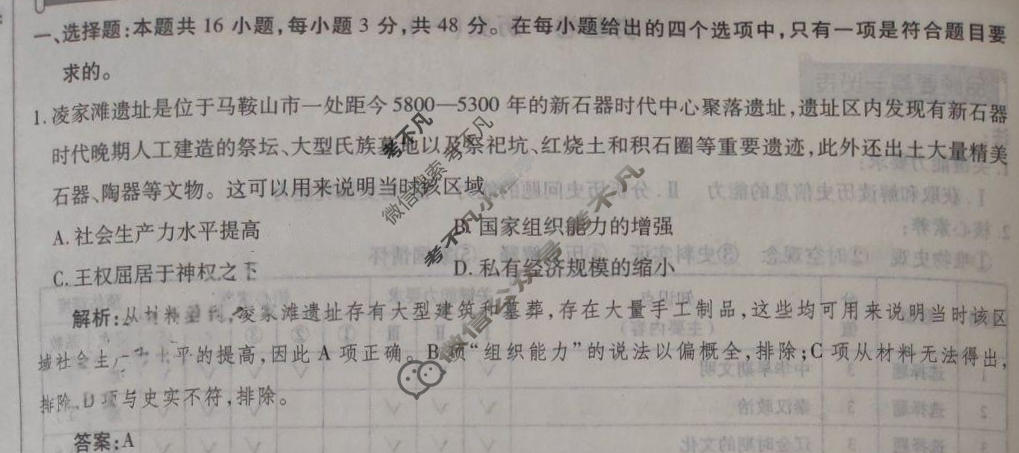 一、选择题:本题共 16 小题,每小题 3 分,共 48 分。在每小题给出的四个选项中,只有一项是符合题目要
求的。
1. 凌家滩遗址是位于马鞍山市一处距今 5800—5300 年的新石器时代中心聚落遗址,遗址区内发现有新石器
时代晚期人工建造的祭坛、大型氏族墓地以及祭祀坑、红烧土和积石圈等重要遗迹,此外还出土大量精美
石器、陶器等文物。这可以用来说明当时该区域
A. 社会生产力水平提高
B. 国家组织能力的增强
C. 王权屈居于神权之下
D. 私有经济规模的缩小
解析:从材料 ,凌家滩遗址存有大型建筑和墓葬,存在大量手工制品,这些均可用来说明当时该区
域社会生 水平的提高,因此 A 项正确。B 项“组织能力”的说法以偏概全,排除;C 项从材料无法得出,
排除,D 项与史实不符,排除。
答案:A
考不凡
微信搜索 考不凡
考不凡小
微信公众号 考不凡